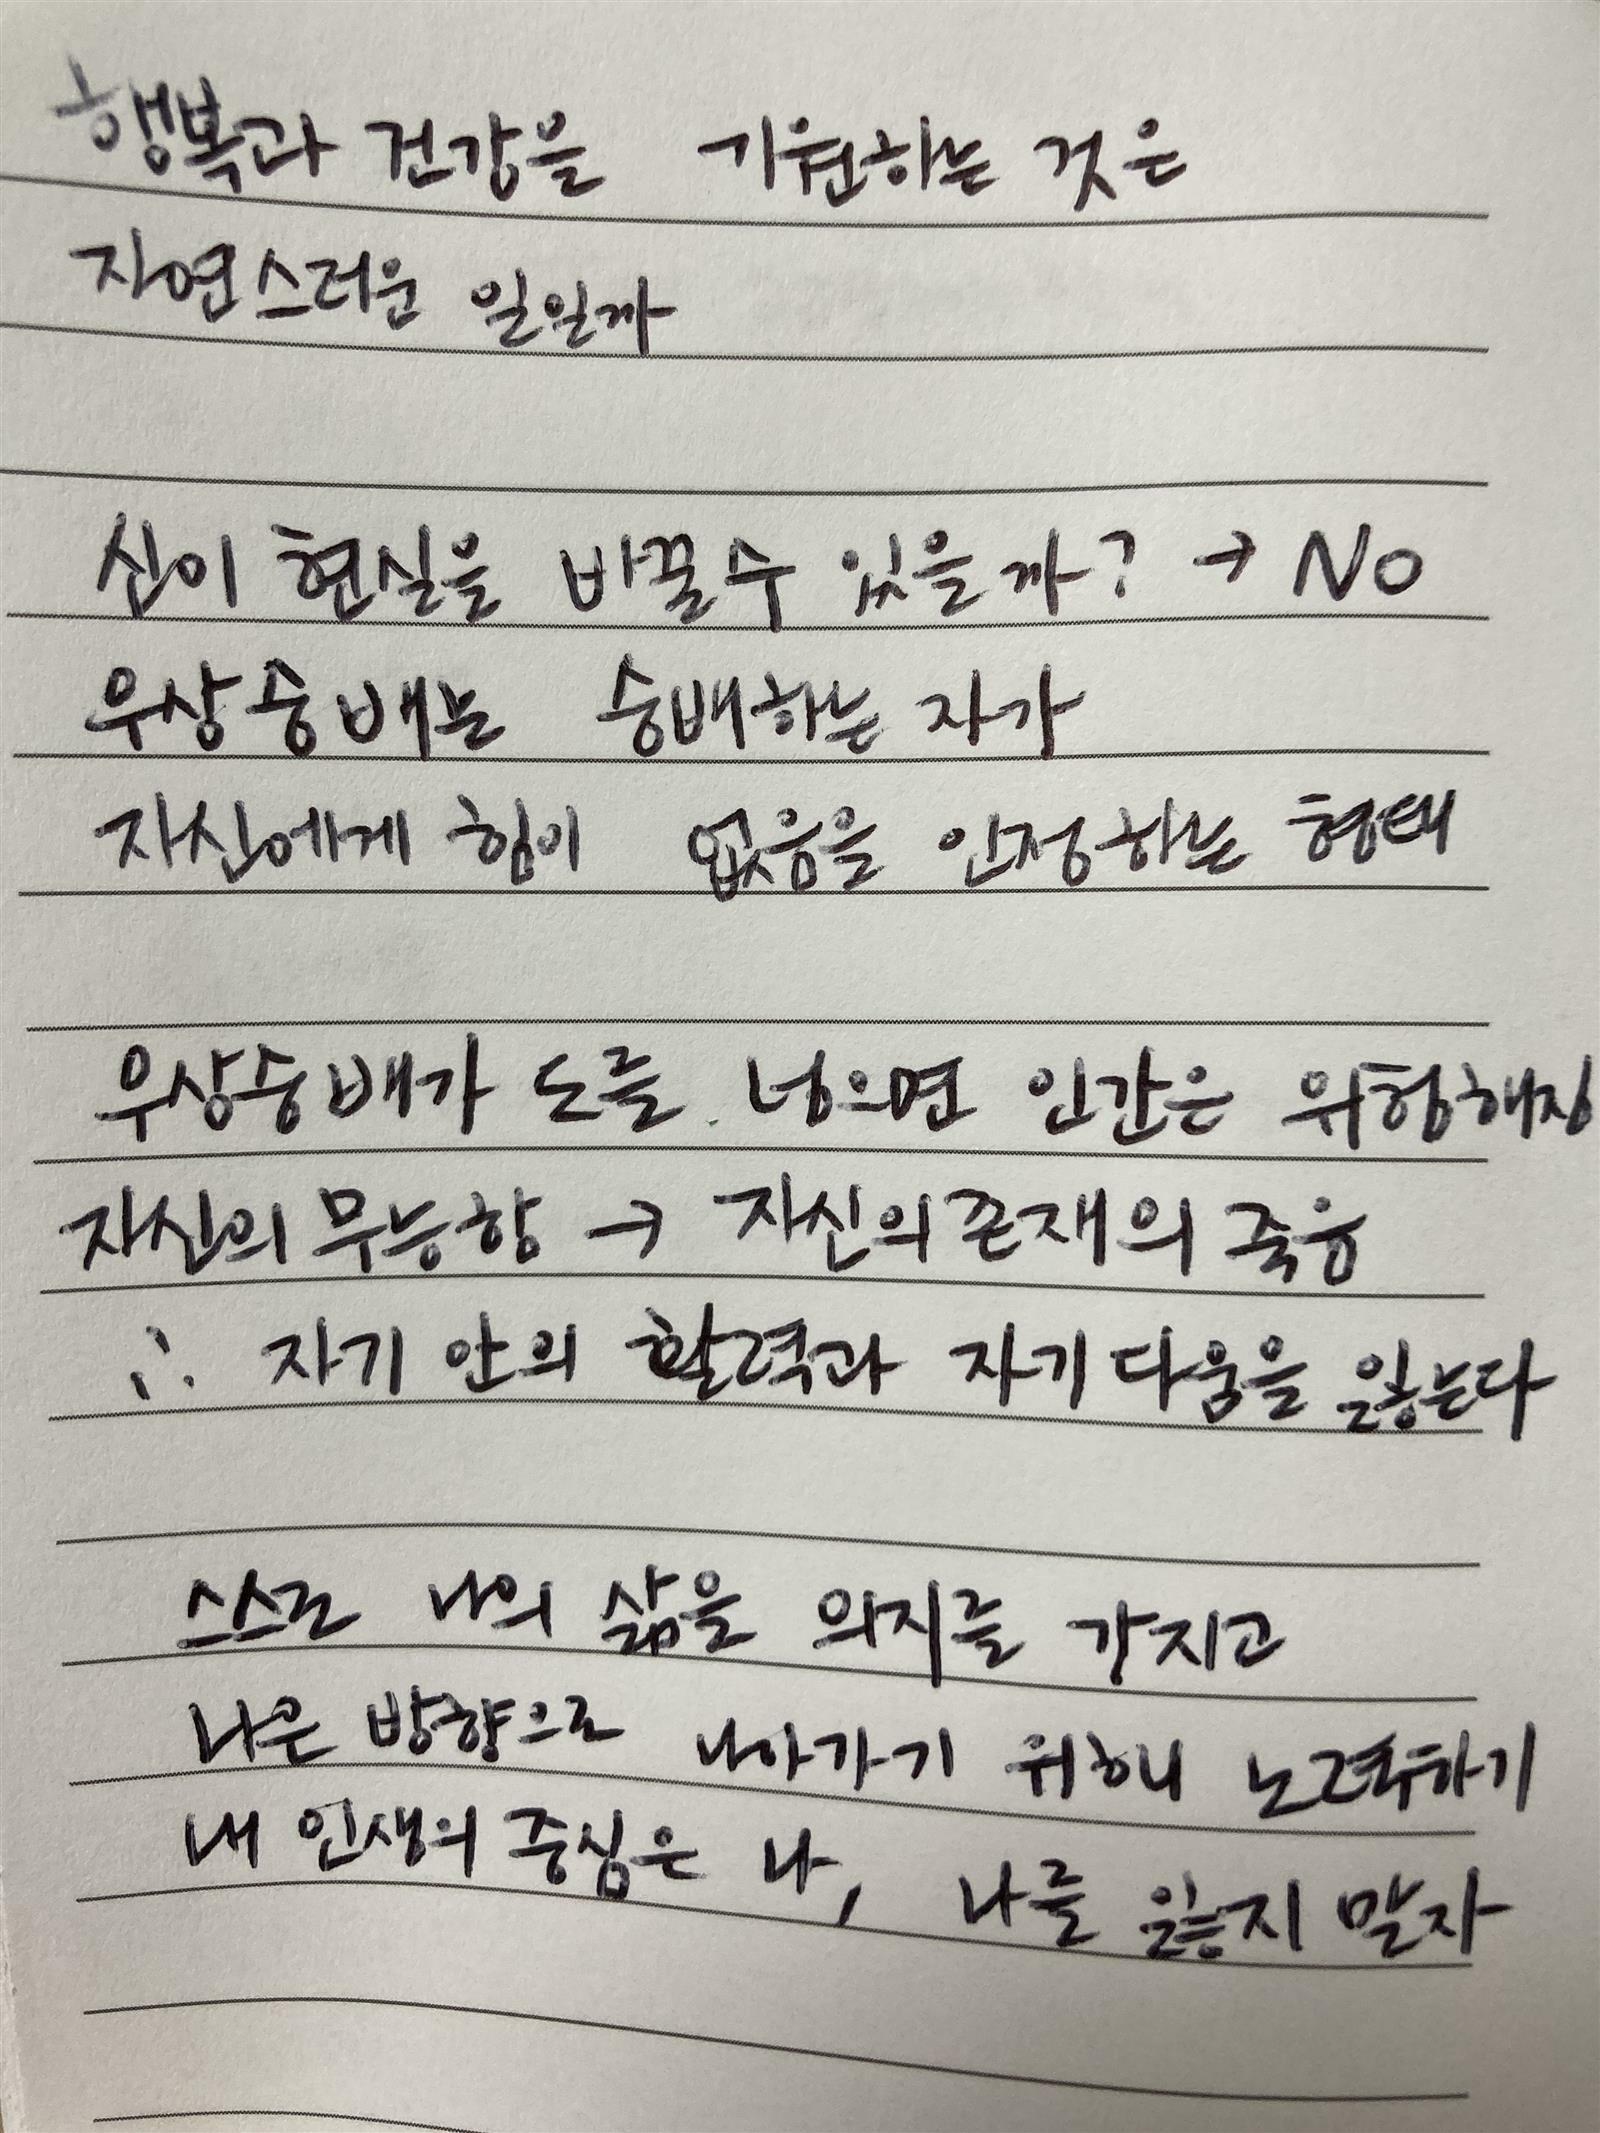 행복과 건강을 기원하는 것은
자연스러운 일일까
신이 현실을 바꿀수 있을까? → No
우상숭배는 숭배하는 자가
자신에게 힘이 없음을 인정하는 형태
우상숭배가 도를 넘으면 인간은 위험해짐
자신의 무능함 → 자신의 존재의 죽음
∴ 자기 안의 활력과 자기다움을 잃는다
스스로 나의 삶을 의지를 가지고
나은 방향으로 나아가기 위해 노력하기
내 인생의 중심은 나, 나를 잃지 말자